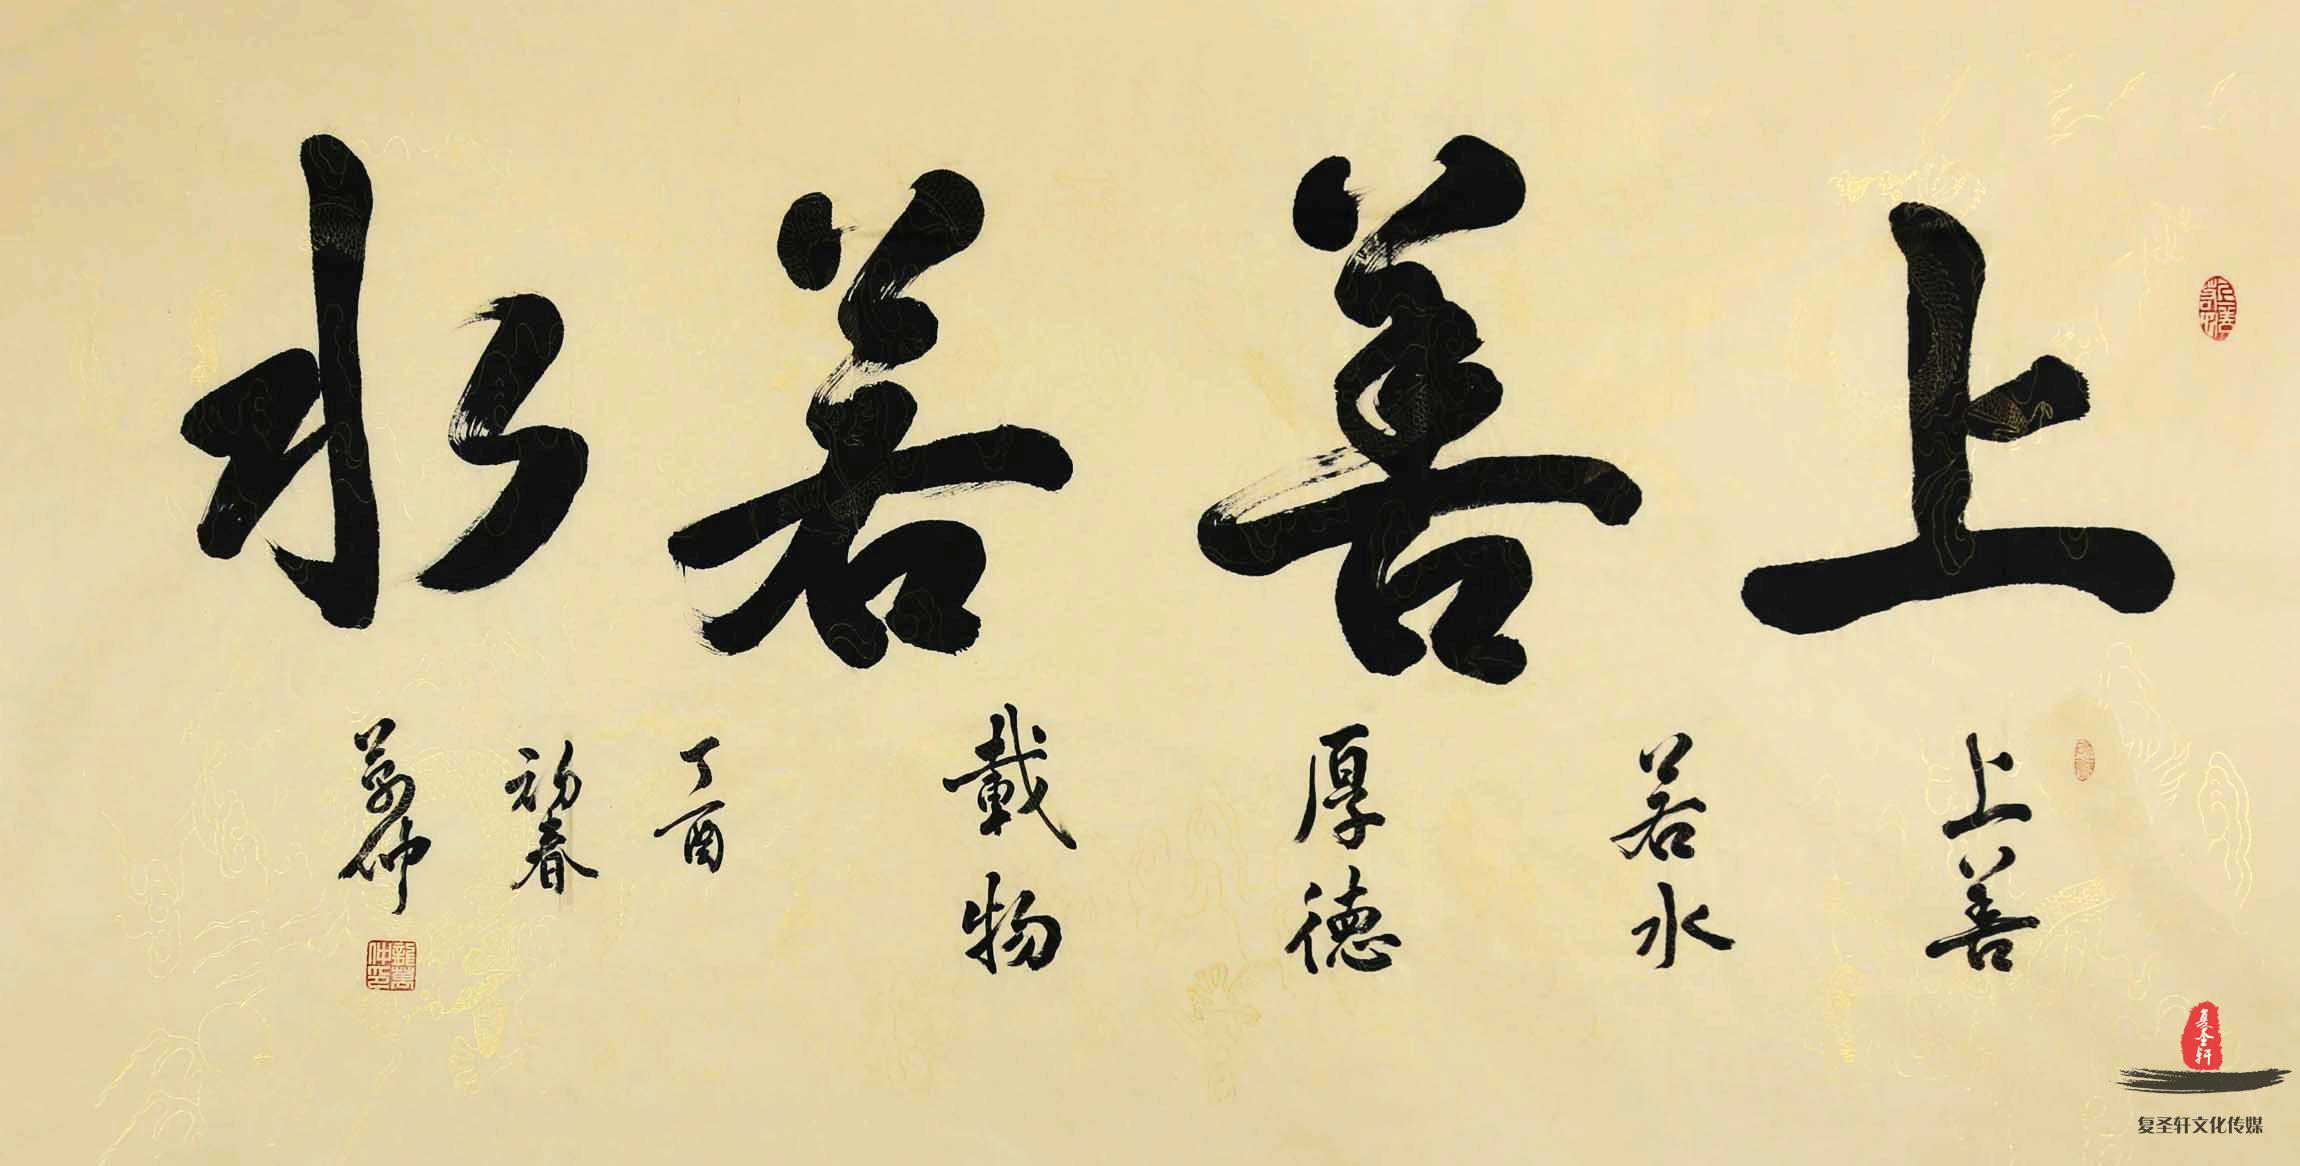 上善若水
上善
若水
厚德
載物
丁酉
初春
萬仲
龍萬仲印
复圣轩
复圣轩文化传媒